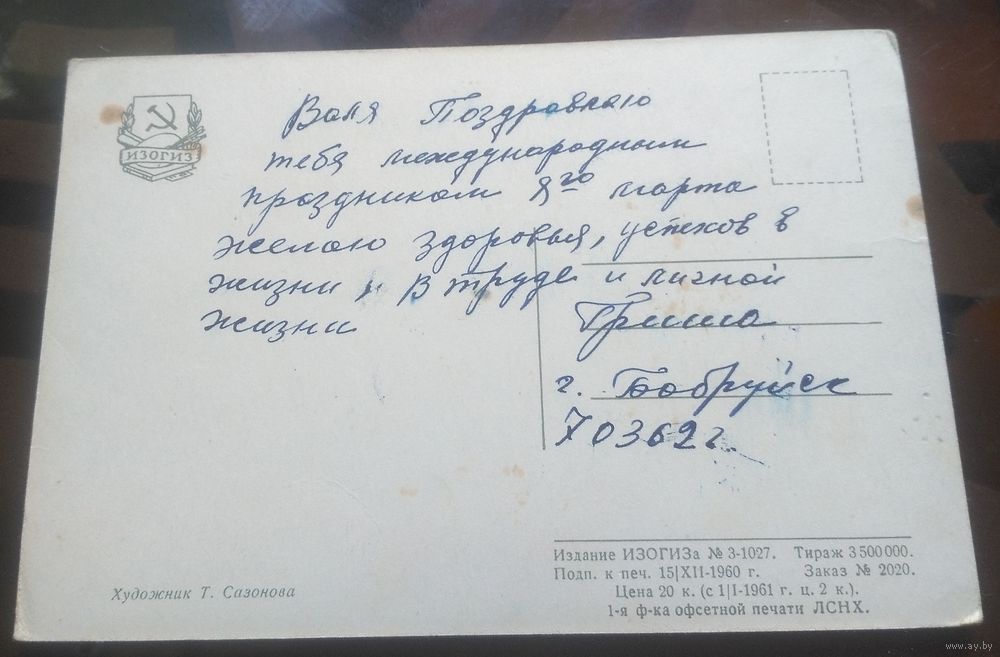 ИЗОГИЗ
Валя Поздравлаю
тебя международным
праздником 8го марта
желаю здоровья, успехов в
жизни, в труде и личной
жизни
Гриша
г. Бобруйск
7 03 62 г.
Издание ИЗОГИЗа № 3-1027. Тираж 3 500 000.
Подп. к печ. 15|XII-1960 г. Заказ № 2020.
Цена 20 к. (с 1|I-1961 г. ц. 2 к.).
1-я ф-ка офсетной печати ЛСНХ.
Художник Т. Сазонова
www.ay.by